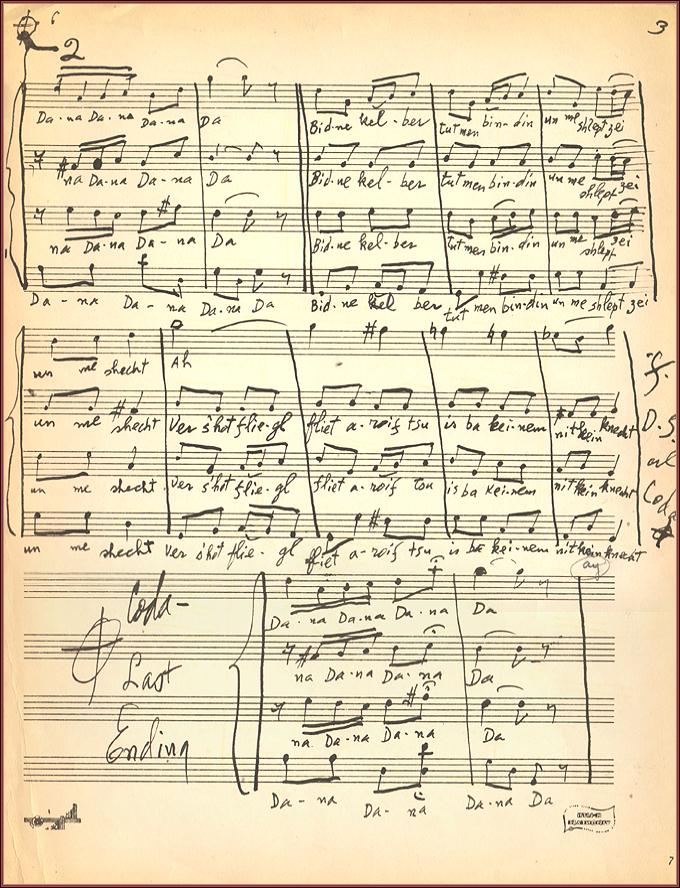 6
3
2
Da-na Da-na Da-na Da Bid-ne kel-ber tut men bin-din un me shlept zei
na Da-na Da-na Da Bid-ne kel-ber tut men bin-din un me shlept zei
na Da-na Da-na Da Bid-ne kel-ber tut men bin-din un me shlept zei
Da-na Da-na Da-na Da Bid-ne kel ber tut men bin-din un me shlept zei
un me shecht Ah
un me shecht Ver s'hot flie-gl fliet a-roif tsu is ba kei-nem nit kein knecht
un me shecht Ver s'hot flie-gl fliet a-roif tsu is ba kei-nem nit kein knecht
un me shecht Ver s'hot flie-gl fliet a-roif tsu is ba kei-nem nit kein knecht
(ay)
D.S.
al
Coda
Coda-
Last
Ending
Da-na Da-na Da-na Da
na Da-na Da-na Da
na Da-na Da-na Da
Da-na Da-na Da-na Da
7